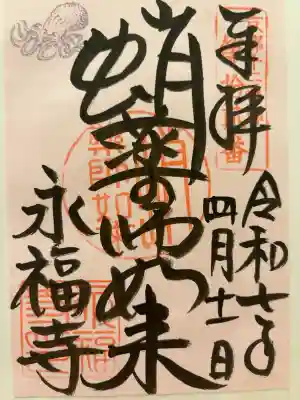 奉拝
令和七年
四月十一日
蛸薬師如来
永福寺